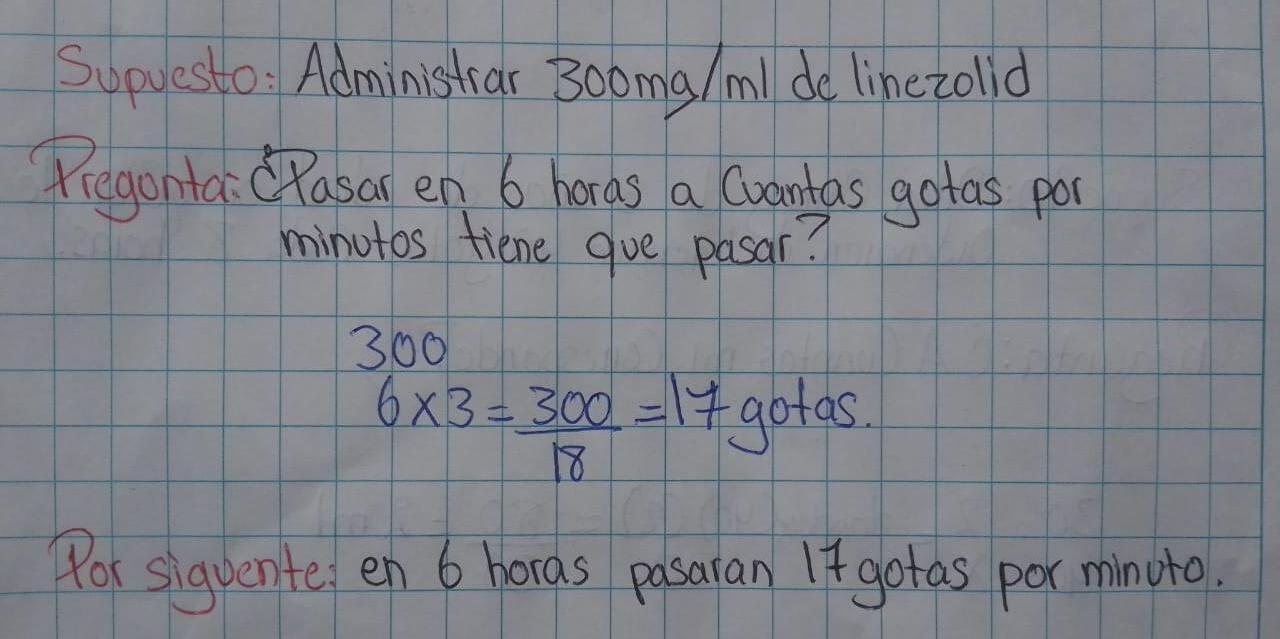 Supuesto: Administrar 300mg/ml de linezolid
Pregunta: ¿Pasar en 6 horas a Cuantas gotas por
minutos tiene que pasar?
300
6x3 = 300 = 17 gotas.
18
Por siguente: en 6 horas pasaran 17 gotas por minuto.